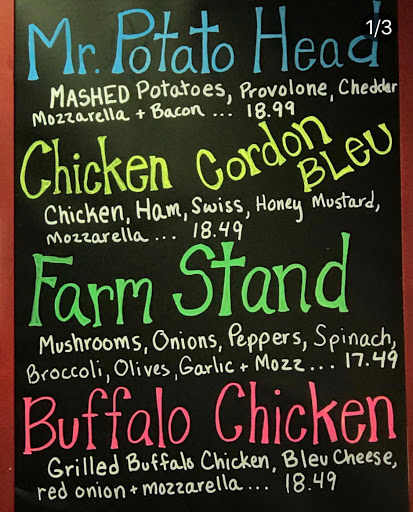 1/3
Mr. Potato Head
MASHED Potatoes, Provolone, Cheddar
Mozzarella + Bacon ... 18.99
Chicken Cordon
BLeu
Chicken, Ham, Swiss, Honey Mustard,
Mozzarella ... 18.49
Farm Stand
Mushrooms, Onions, Peppers, Spinach,
Broccoli, Olives, Garlic + Mozz ... 17.49
Buffalo Chicken
Grilled Buffalo Chicken, Bleu Cheese,
red onion + mozzarella ... 18.49